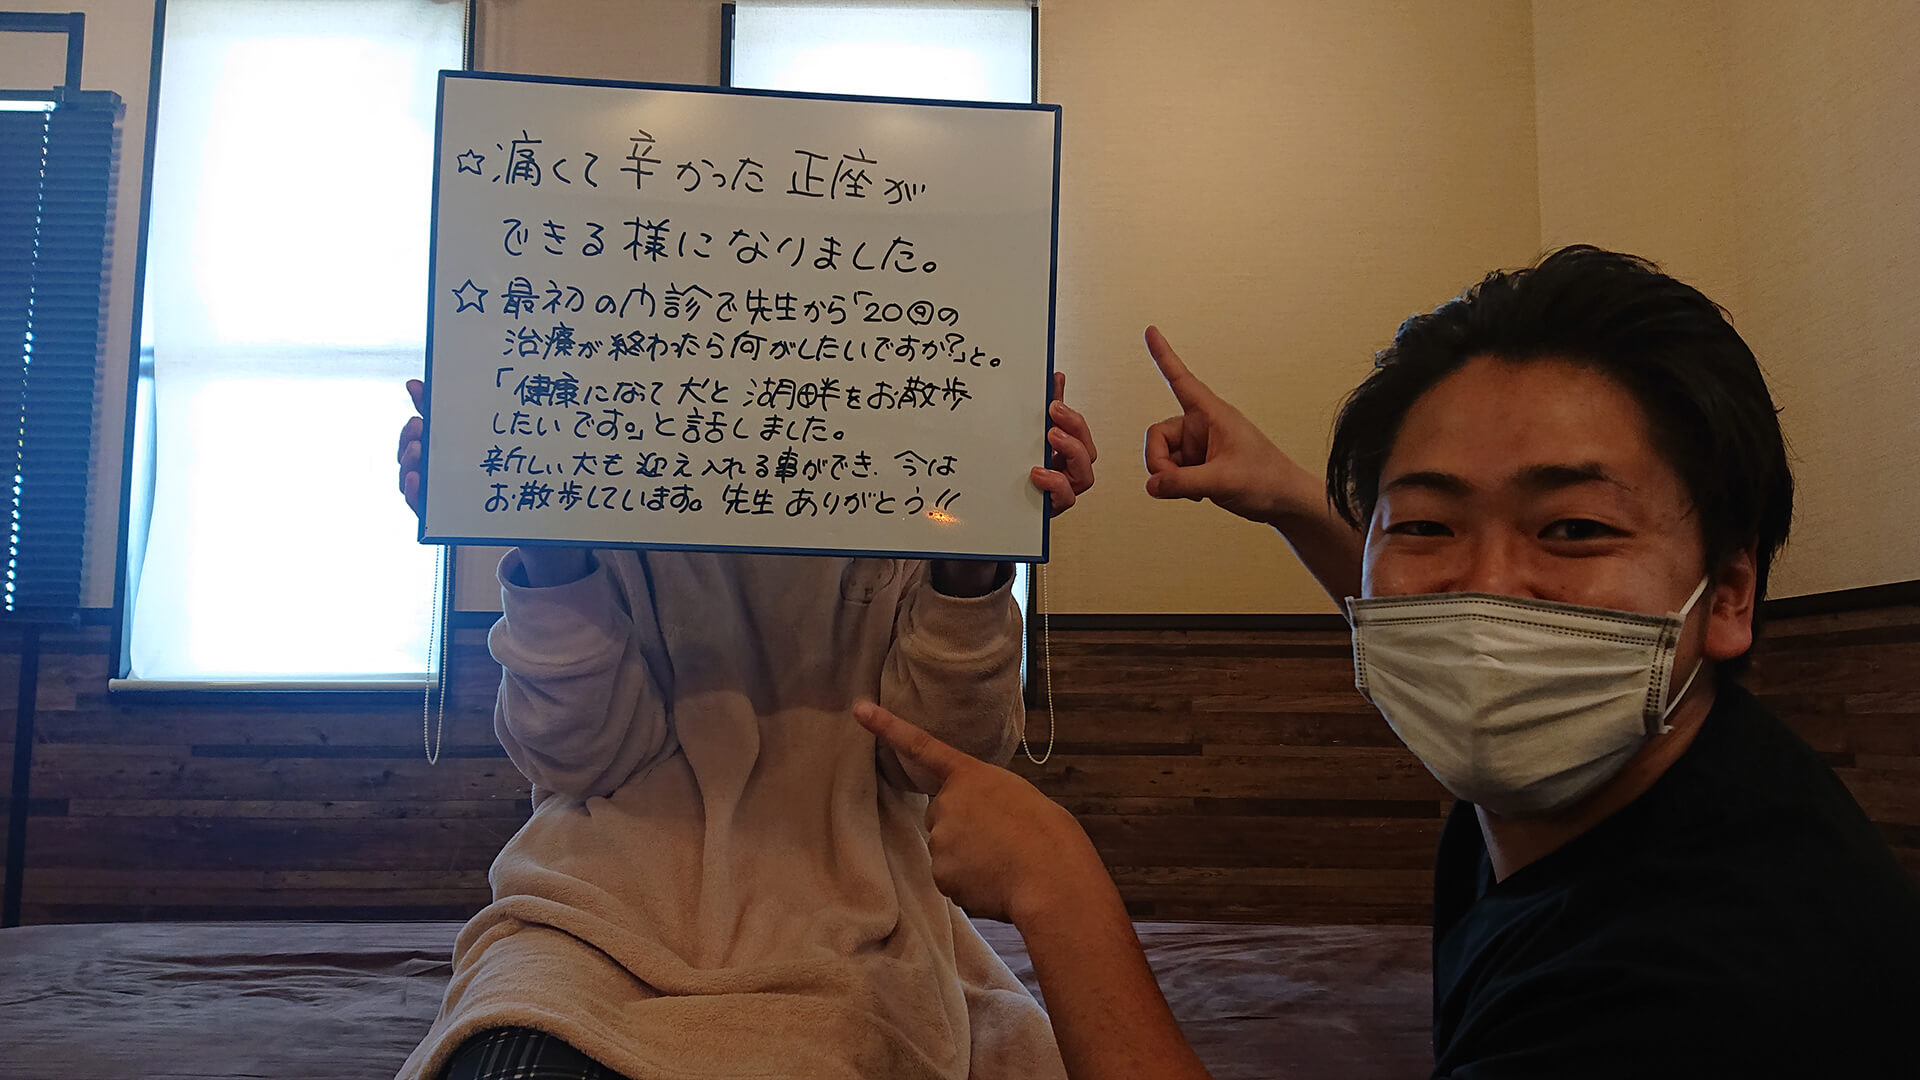 ☆痛くて辛かった正座が
できる様になりました。
☆最初の内診で先生から「20回の
治療が終わったら何がしたいですか?」と。
「健康になって犬と湖畔をお散歩
したいです。」と話しました。
新しい犬も迎え入れる事ができ、今は
お散歩しています。先生ありがとう!!